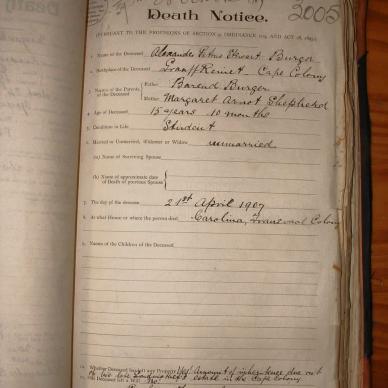 2005
Death Notice.
(PURSUANT TO THE PROVISIONS OF SECTION 9, ORDINANCE 104, AND ACT 18, 1895).
1. Name of the Deceased Alexander Stewart Burger
2. Birthplace of the Deceased Graaff Reinet Cape Colony
3. Names of the Parents of the Deceased Father Barend Burger
Mother Margaret Arnot Shepherd
4. Age of Deceased 15 years 10 months
5. Condition in Life Student
6. Married or Unmarried, Widower or Widow unmarried
(a) Name of Surviving Spouse
(b) Name and approximate date of Death of previous Spouse
7. The day of the decease 21st April 1907
8. At what House or where the person died Carolina, Transvaal Colony
9. Names of the Children of the Deceased
10. Whether Deceased has left any Property Yes Amount of inheritance due out
of his late Grandmother's estate in the Cape Colony
11. Deceased left a Will No.